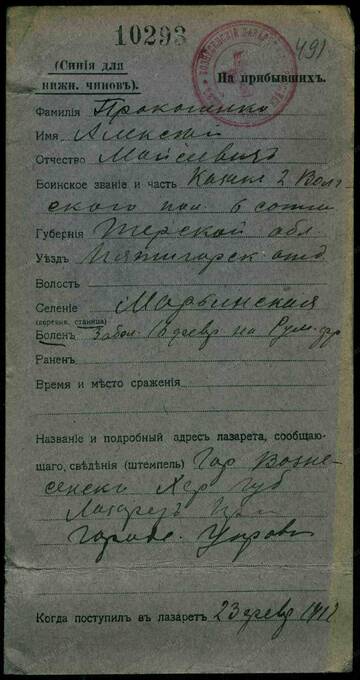 10293
491
(Синія для
нижн. чиновъ).
На прибывшихъ.
Фамилія Прокопенко
Имя Алексѣй
Отчество Моисеевичъ
Воинское званіе и часть Казакъ 2 Волг-
скаго пол. 6 сотни
Губернія Терской обл
Уѣздъ Пятигорск отд
Волость
Селеніе Марьинская
(деревня, станица)
Боленъ Забол. 10 февр на Рум. фр
Раненъ
Время и мѣсто сраженія
Названіе и подробный адресъ лазарета, сообщаю-
щаго, свѣдѣнія (штемпель) Гор Возне-
сенскъ Хер Губ
Лазаретъ при
Городс. Управ
Когда поступил въ лазаретъ 23 февр 1917